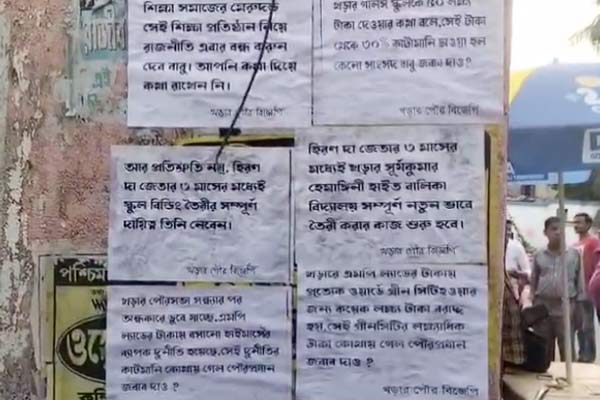 শিক্ষা সমাজের মেরুদন্ড
সেই শিক্ষা প্রতিষ্ঠান নিয়ে
রাজনীতি এবার বন্ধ করুন
দেব বাবু। আপনি কথা দিয়ে
কথা রাখেন নি।
খড়ার পৌর বিজেপি
খড়ার গার্লস স্কুলকে ৫০ লক্ষ
টাকা দেওয়ার কথা বলে, সেই টাকা
থেকে ৩০% কাটমানি চাওয়া হল
কেনো সাংসদ বাবু জবাব দাও?
খড়ার পৌর বিজেপি
আর প্রতিশ্রুতি নয়, হিরণ
দা জেতার ৩ মাসের মধ্যেই
স্কুল বিল্ডিং তৈরীর সম্পূর্ণ
দায়িত্ব তিনি নেবেন।
খড়ার পৌর বিজেপি
হিরণ দা জেতার ৩ মাসের
মধ্যেই খড়ার সূর্যকুমার
হেমাঙ্গিনী হাইত বালিকা
বিদ্যালয় সম্পূর্ণ নতুন ভাবে
তৈরী করার কাজ শুরু হবে।
খড়ার পৌর বিজেপি
খড়ার পৌরসভা সন্ধ্যার পর
অন্ধকারে ডুবে যাচ্ছে, এমপি
ল্যাডের টাকায় বসানো হাইমাস্কের
ব্যাপক দুর্নীতি হয়েছে, সেই দুর্নীতির
কাটমানি কোথায় গেল পৌরপ্রধান
জবাব দাও?
খড়ারে এমপি ল্যাডের টাকায়
প্রত্যেক ওয়ার্ডে গ্রীন সিটি হওয়ার
জন্য কয়েক লক্ষ টাকা বরাদ্দ
হয়, সেই গ্রীনসিটির লক্ষ্যাধিক
টাকা কোথায় গেল পৌরপ্রধান
জবাব দাও?
খড়ার পৌর বিজেপি
পশ্চিম